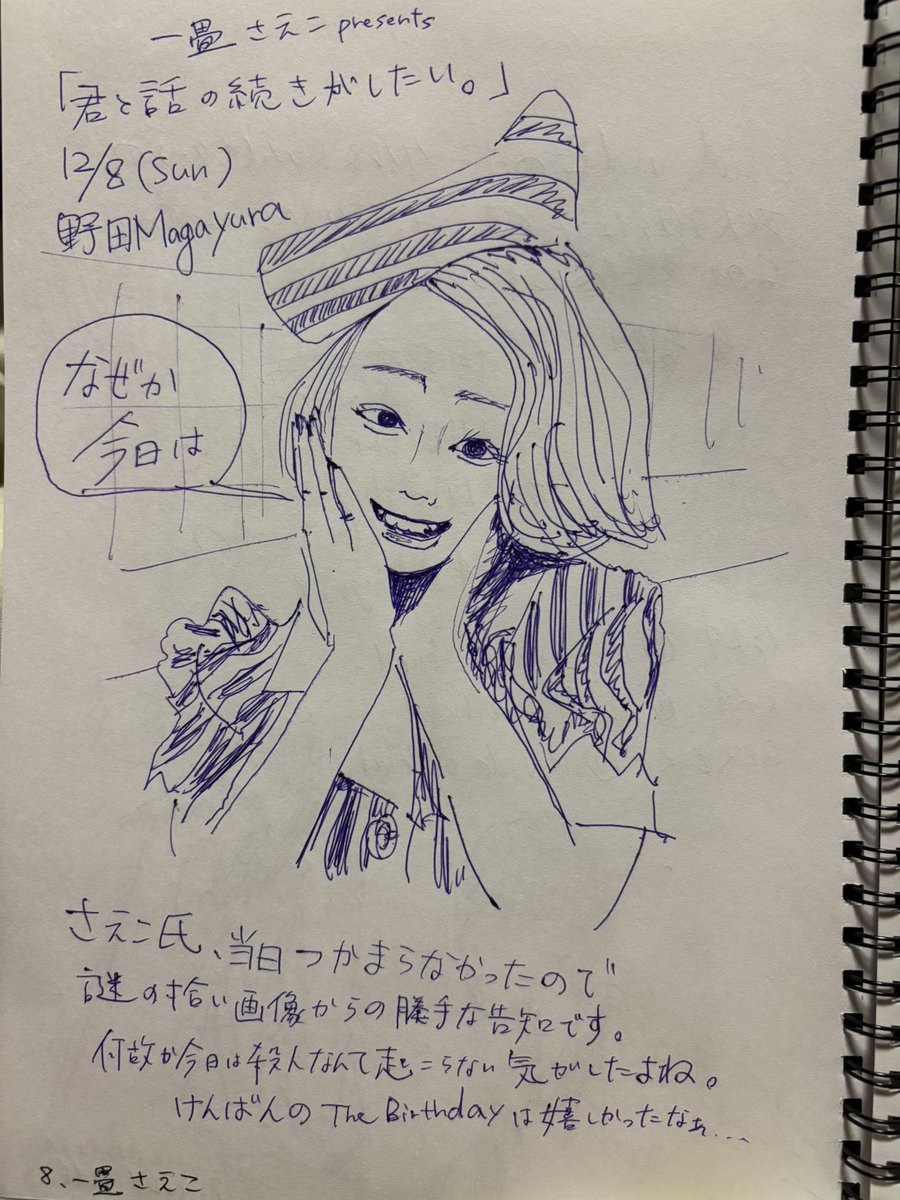 一畳さえこ presents
「君と話の続きがしたい。」
12/8 (Sun)
野田Magayura
なぜか
今日は
さえこ氏、当日つかまらなかったので
謎の拾い画像からの勝手な告知です。
何故か今日は殺人なんて起こらない気がしたよね。
けんばんの The Birthday は嬉しかったなぁ...
8、一畳さえこ